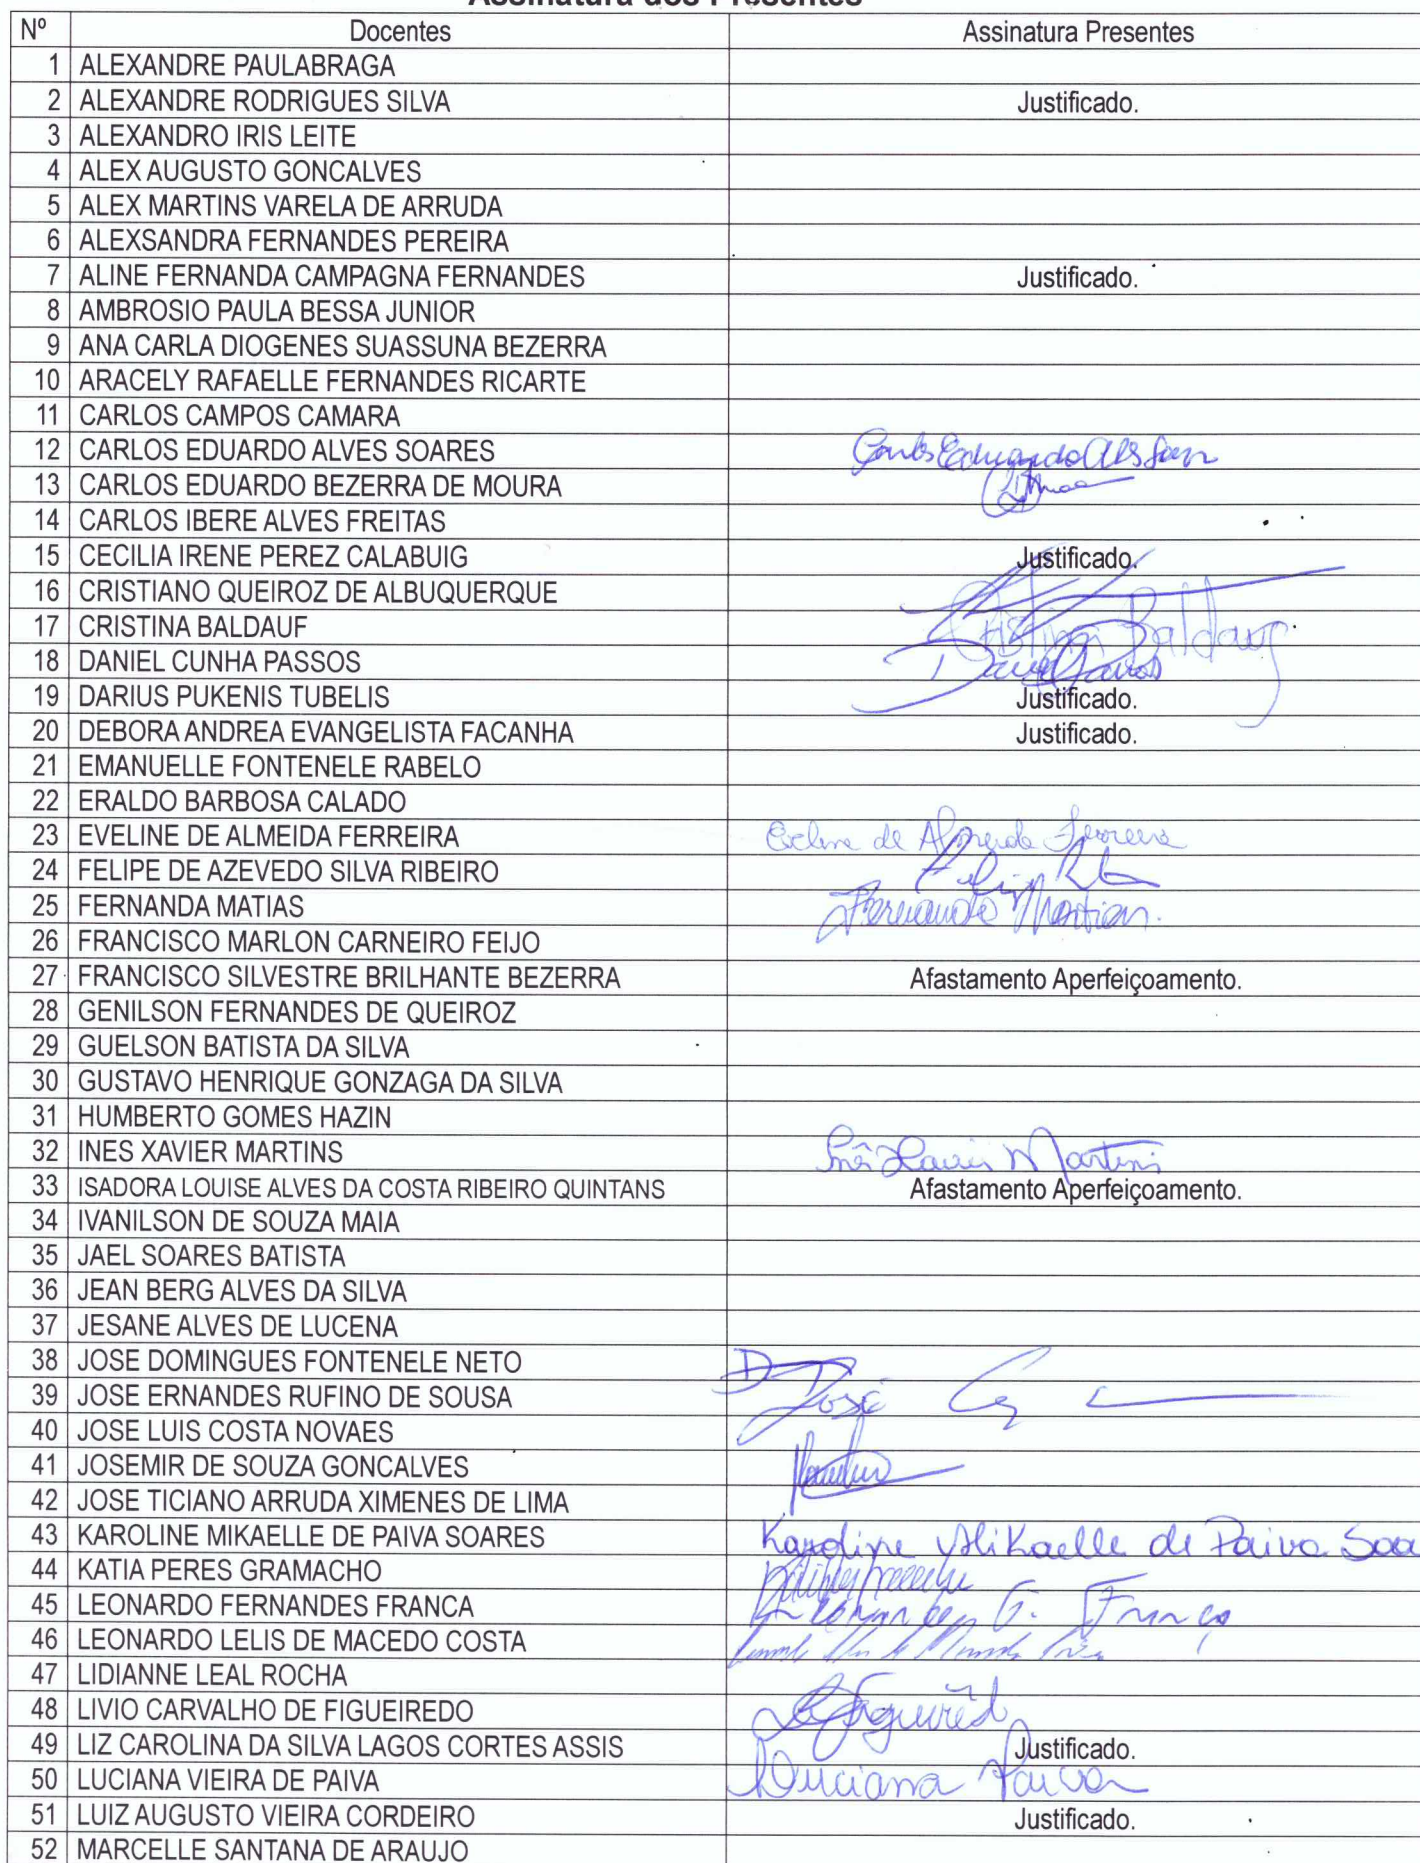 Assinatura dos Presentes
Nº Docentes Assinatura Presentes
1 ALEXANDRE PAULABRAGA
2 ALEXANDRE RODRIGUES SILVA Justificado.
3 ALEXANDRO IRIS LEITE
4 ALEX AUGUSTO GONCALVES
5 ALEX MARTINS VARELA DE ARRUDA
6 ALEXSANDRA FERNANDES PEREIRA
7 ALINE FERNANDA CAMPAGNA FERNANDES Justificado.
8 AMBROSIO PAULA BESSA JUNIOR
9 ANA CARLA DIOGENES SUASSUNA BEZERRA
10 ARACELY RAFAELLE FERNANDES RICARTE
11 CARLOS CAMPOS CAMARA
12 CARLOS EDUARDO ALVES SOARES Carlos Eduardo
13 CARLOS EDUARDO BEZERRA DE MOURA
14 CARLOS IBERE ALVES FREITAS
15 CECILIA IRENE PEREZ CALABUIG Justificado.
16 CRISTIANO QUEIROZ DE ALBUQUERQUE
17 CRISTINA BALDAUF Cristina Baldauf
18 DANIEL CUNHA PASSOS
19 DARIUS PUKENIS TUBELIS Justificado.
20 DEBORA ANDREA EVANGELISTA FACANHA Justificado.
21 EMANUELLE FONTENELE RABELO
22 ERALDO BARBOSA CALADO
23 EVELINE DE ALMEIDA FERREIRA Eveline de Almeida Ferreira
24 FELIPE DE AZEVEDO SILVA RIBEIRO
25 FERNANDA MATIAS Fernanda Matias
26 FRANCISCO MARLON CARNEIRO FEIJO
27 FRANCISCO SILVESTRE BRILHANTE BEZERRA Afastamento Aperfeiçoamento.
28 GENILSON FERNANDES DE QUEIROZ
29 GUELSON BATISTA DA SILVA
30 GUSTAVO HENRIQUE GONZAGA DA SILVA
31 HUMBERTO GOMES HAZIN
32 INES XAVIER MARTINS Inês Xavier Martins
33 ISADORA LOUISE ALVES DA COSTA RIBEIRO QUINTANS Afastamento Aperfeiçoamento.
34 IVANILSON DE SOUZA MAIA
35 JAEL SOARES BATISTA
36 JEAN BERG ALVES DA SILVA
37 JESANE ALVES DE LUCENA
38 JOSE DOMINGUES FONTENELE NETO
39 JOSE ERNANDES RUFINO DE SOUSA José
40 JOSE LUIS COSTA NOVAES
41 JOSEMIR DE SOUZA GONCALVES
42 JOSE TICIANO ARRUDA XIMENES DE LIMA
43 KAROLINE MIKAELLE DE PAIVA SOARES Karoline Mikaelle de Paiva Soa
44 KATIA PERES GRAMACHO
45 LEONARDO FERNANDES FRANCA Leonardo F. França
46 LEONARDO LELIS DE MACEDO COSTA
47 LIDIANNE LEAL ROCHA
48 LIVIO CARVALHO DE FIGUEIREDO
49 LIZ CAROLINA DA SILVA LAGOS CORTES ASSIS Justificado.
50 LUCIANA VIEIRA DE PAIVA Luciana Paiva
51 LUIZ AUGUSTO VIEIRA CORDEIRO Justificado.
52 MARCELLE SANTANA DE ARAUJO